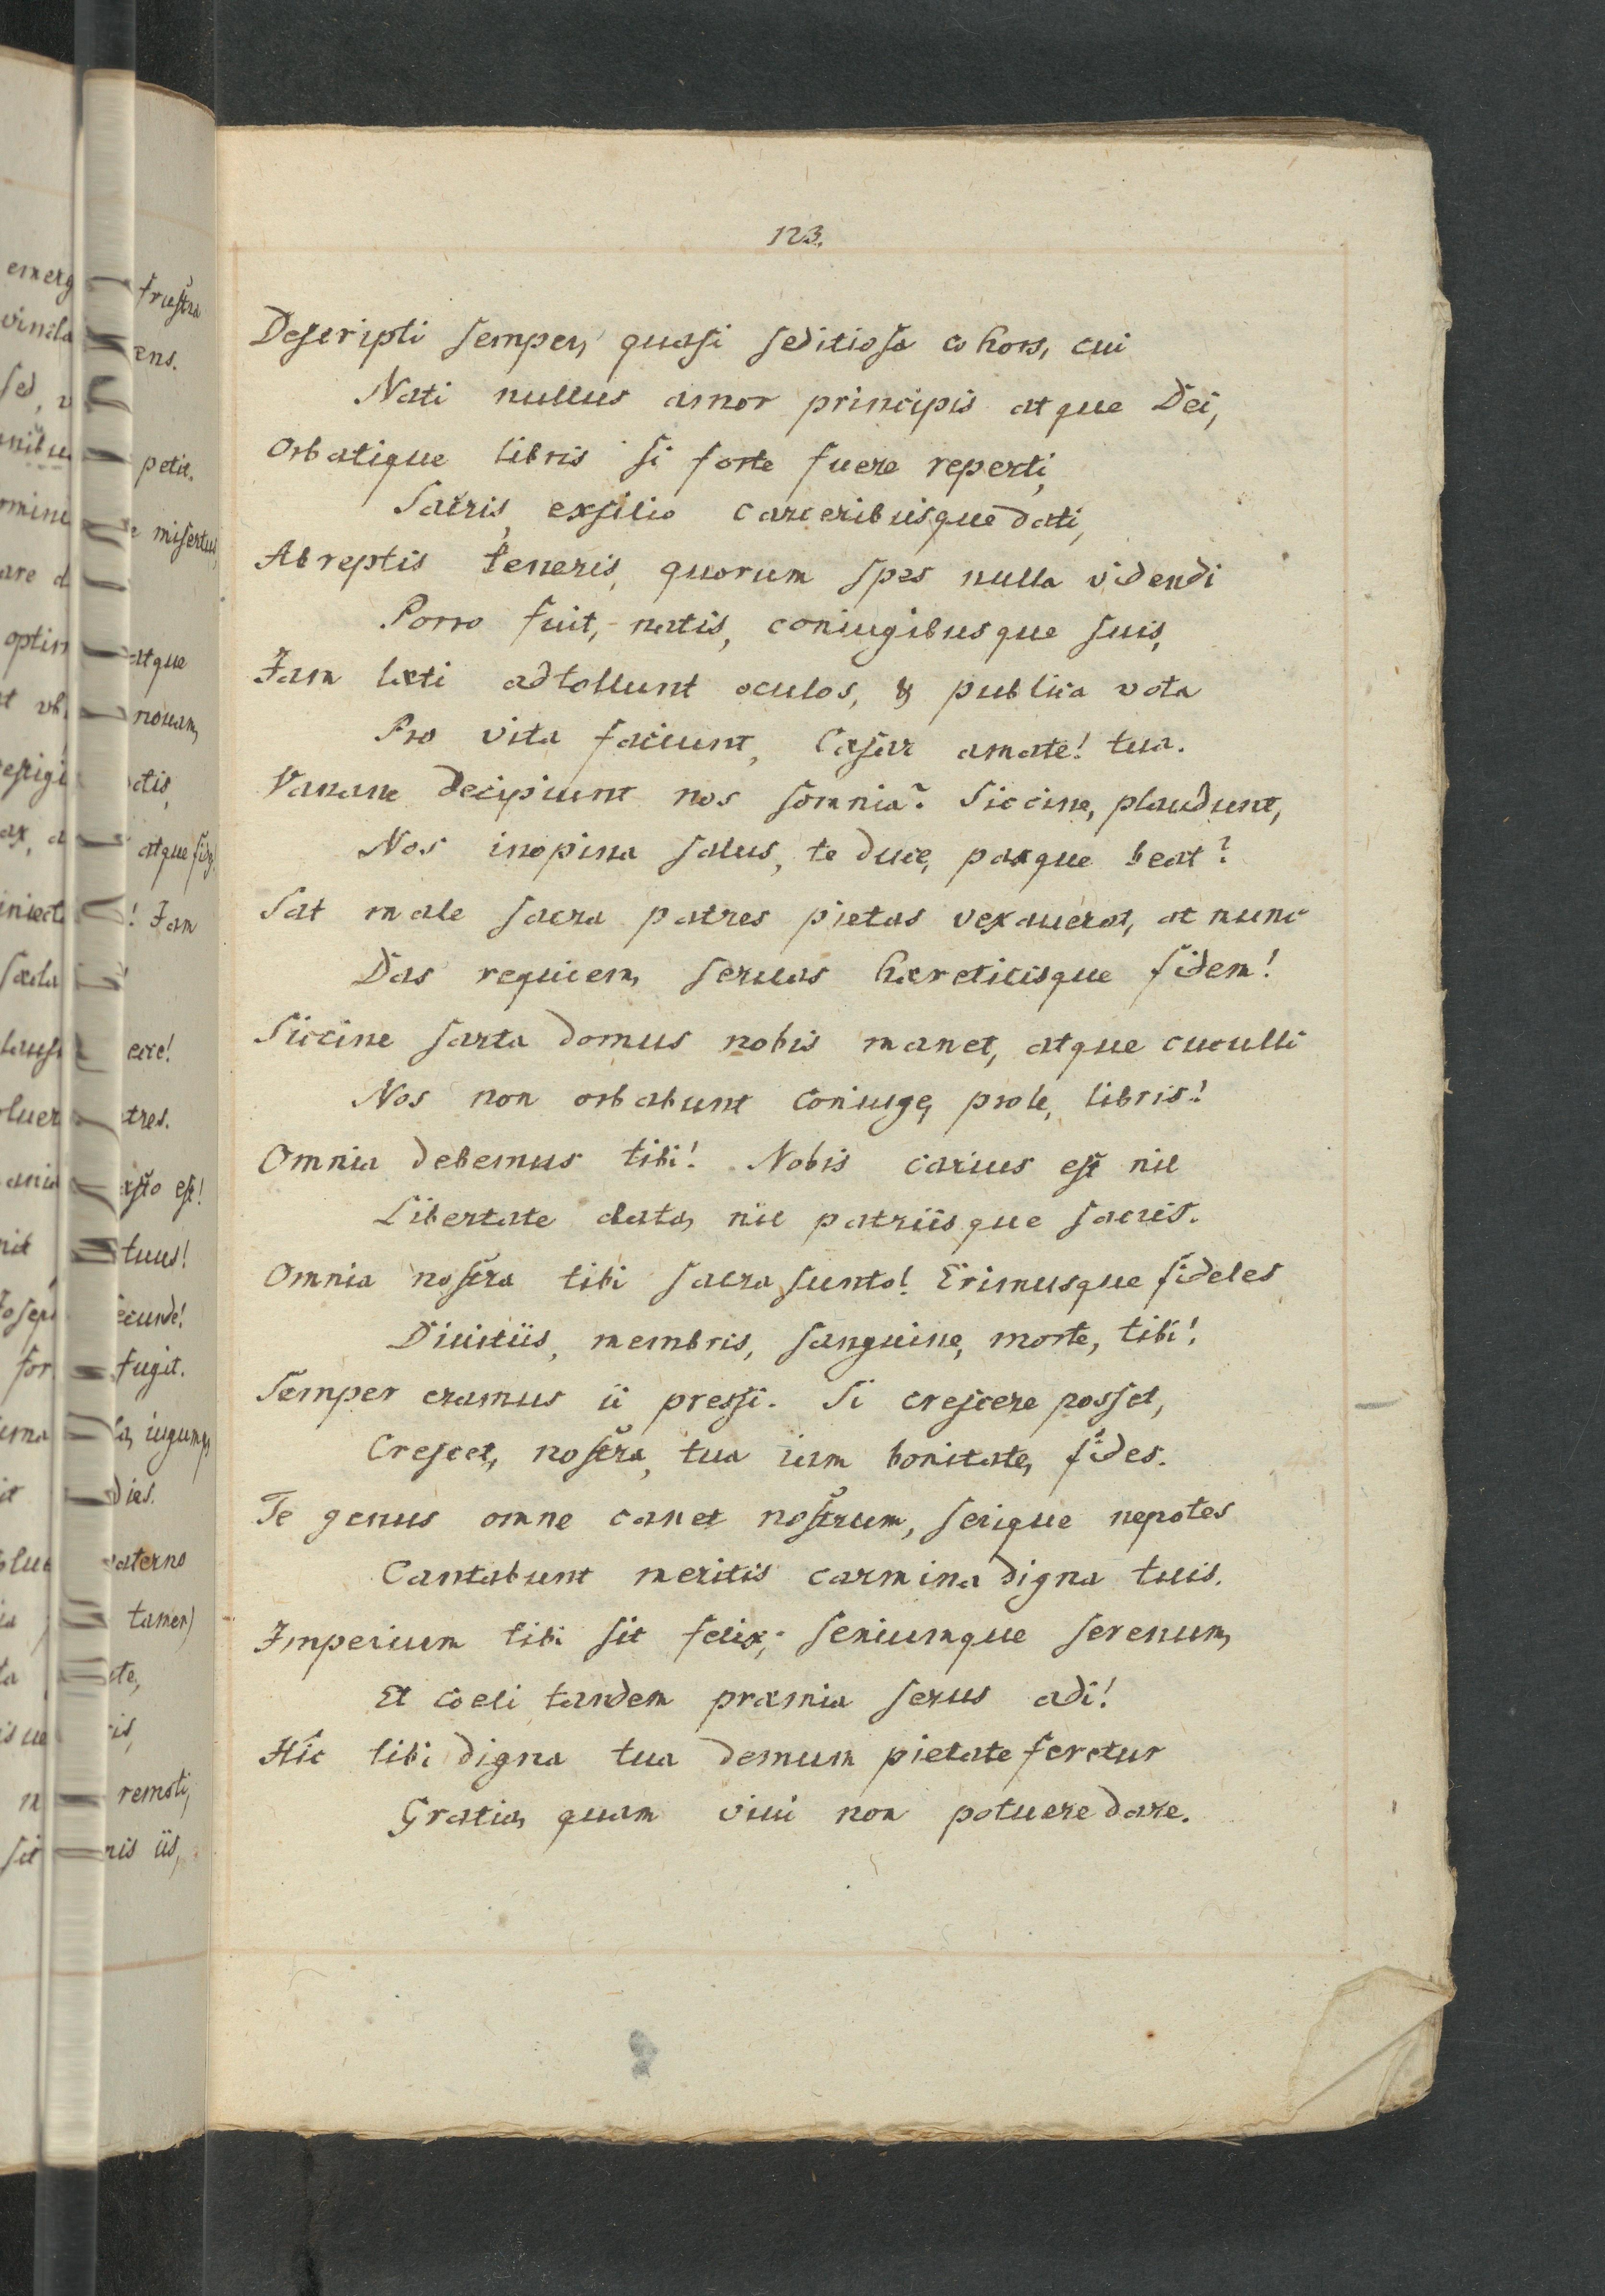 123.
Descripti semper, quasi seditiosa cohors, cui
Nati nullus amor principis atque Dei,
Orbatique libris si forte fuere reperti,
Sacris, exsilio carceribusque dati,
Abreptis teneris, quorum spes nulla videndi
Porro fuit, natis, coniugibusque suis,
Jam læti adtollunt oculos, & publica vota
Pro vita faciunt, Cæsar amate! tua.
Vanane decipiunt nos somnia? Siccine, plaudunt,
Nos inopina salus, te duce, paxque beat?
Sat male sacra patres pietas vexauerat, at nunc
Das requiem, seruas hæreticisque fidem!
Siccine sarta domus nobis manet, atque cuculli
Nos non orbabunt coniuge, prole, libris!
Omnia debemus tibi! Nobis carius est nil
Libertate data, nil patriisque sacris.
Omnia nostra tibi sacra sunto! Erimusque fideles
Diuitiis, membris, sanguine, morte, tibi!
Semper eramus ii pressi. Si crescere posset,
Crescet, nostra, tua iam bonitate, fides.
Te genus omne canet nostrum, serique nepotes
Cantabunt meritis carmina digna tuis.
Imperium tibi sit felix, seniumque serenum,
Et coeli tandem præmia serus adi!
Hic tibi digna tua demum pietate feretur
Gratia, quam viui non potuere dare.